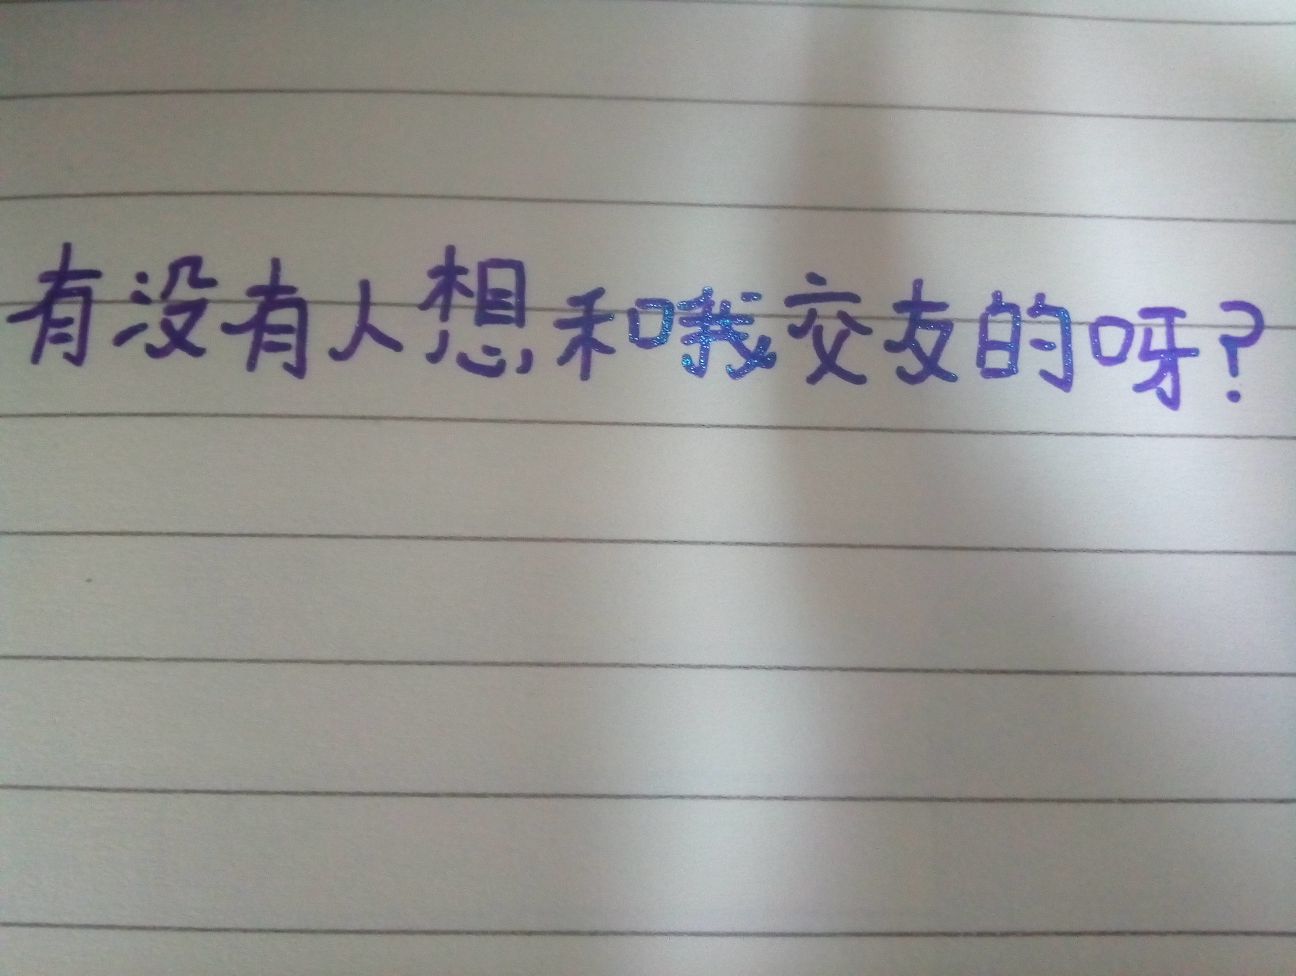 有没有人想和我交友的呀?